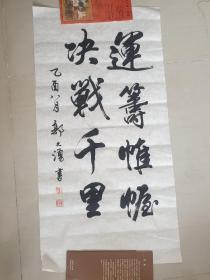 運籌帷幄
决戰千里
乙酉八月 郭 書